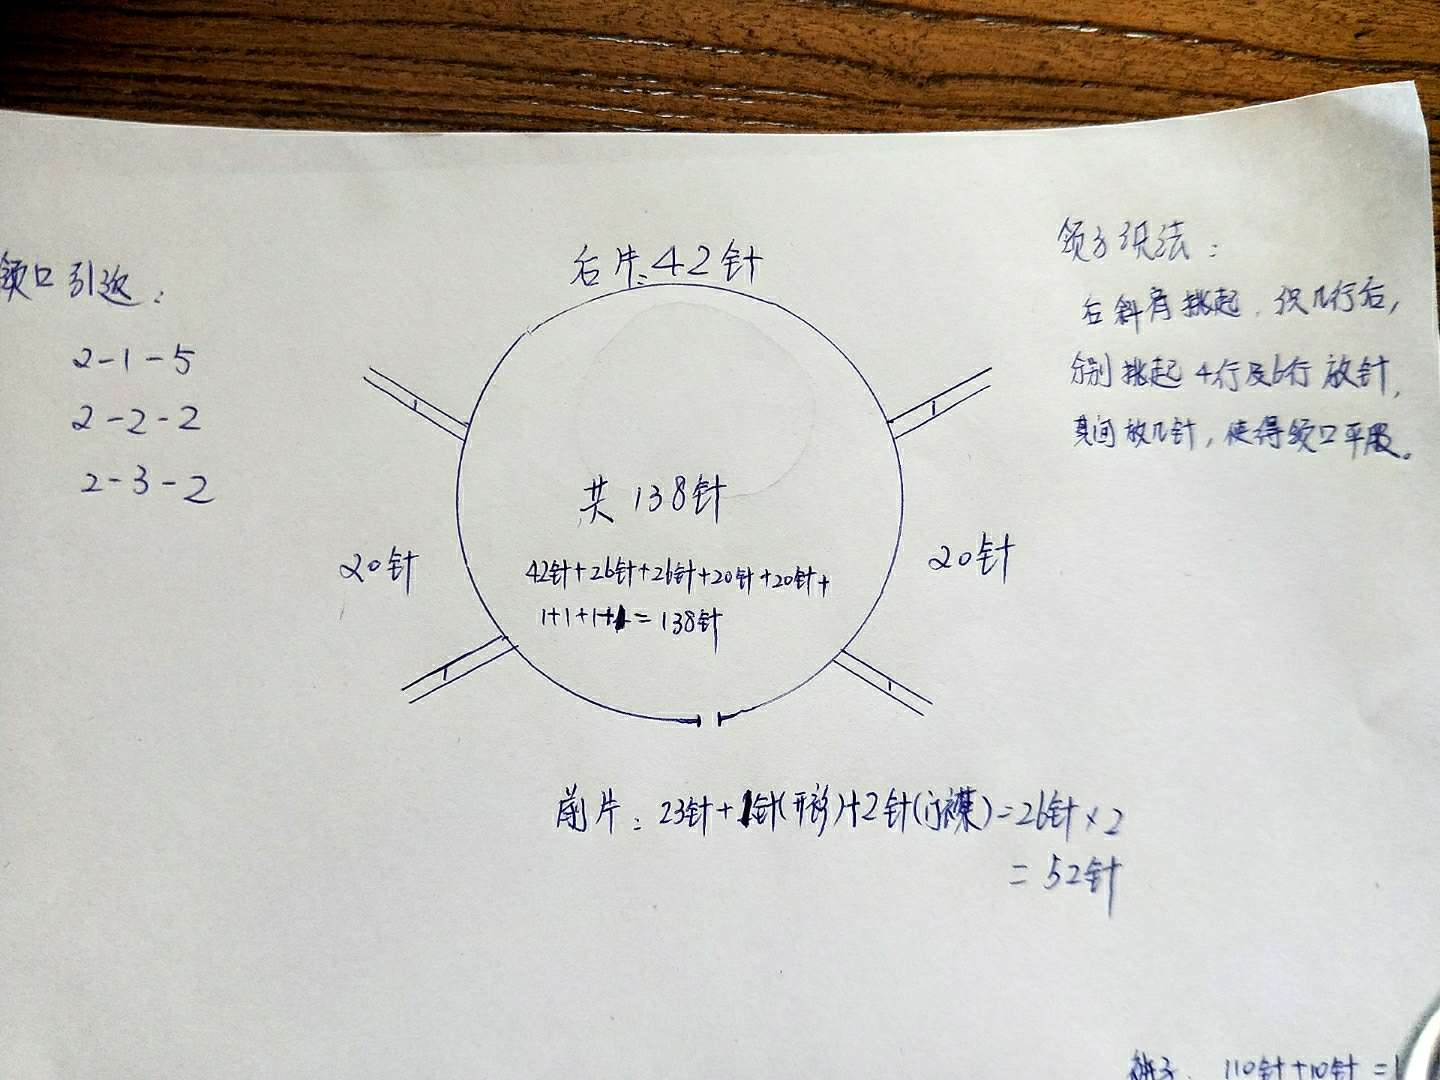 后片:42针
领口引返:
2-1-5
2-2-2
2-3-2
领子织法:
后斜肩挑起,织几行后,
分别挑起4行及6行放针,
其间放几针,使得领口平服。
1
1
共138针
42针+26针+26针+20针+20针+
1+1+1+1=138针
20针
20针
1
1
前片:23针+1针(开衫)+2针(门襟)=26针×2
=52针
裤子 110针+10针=1